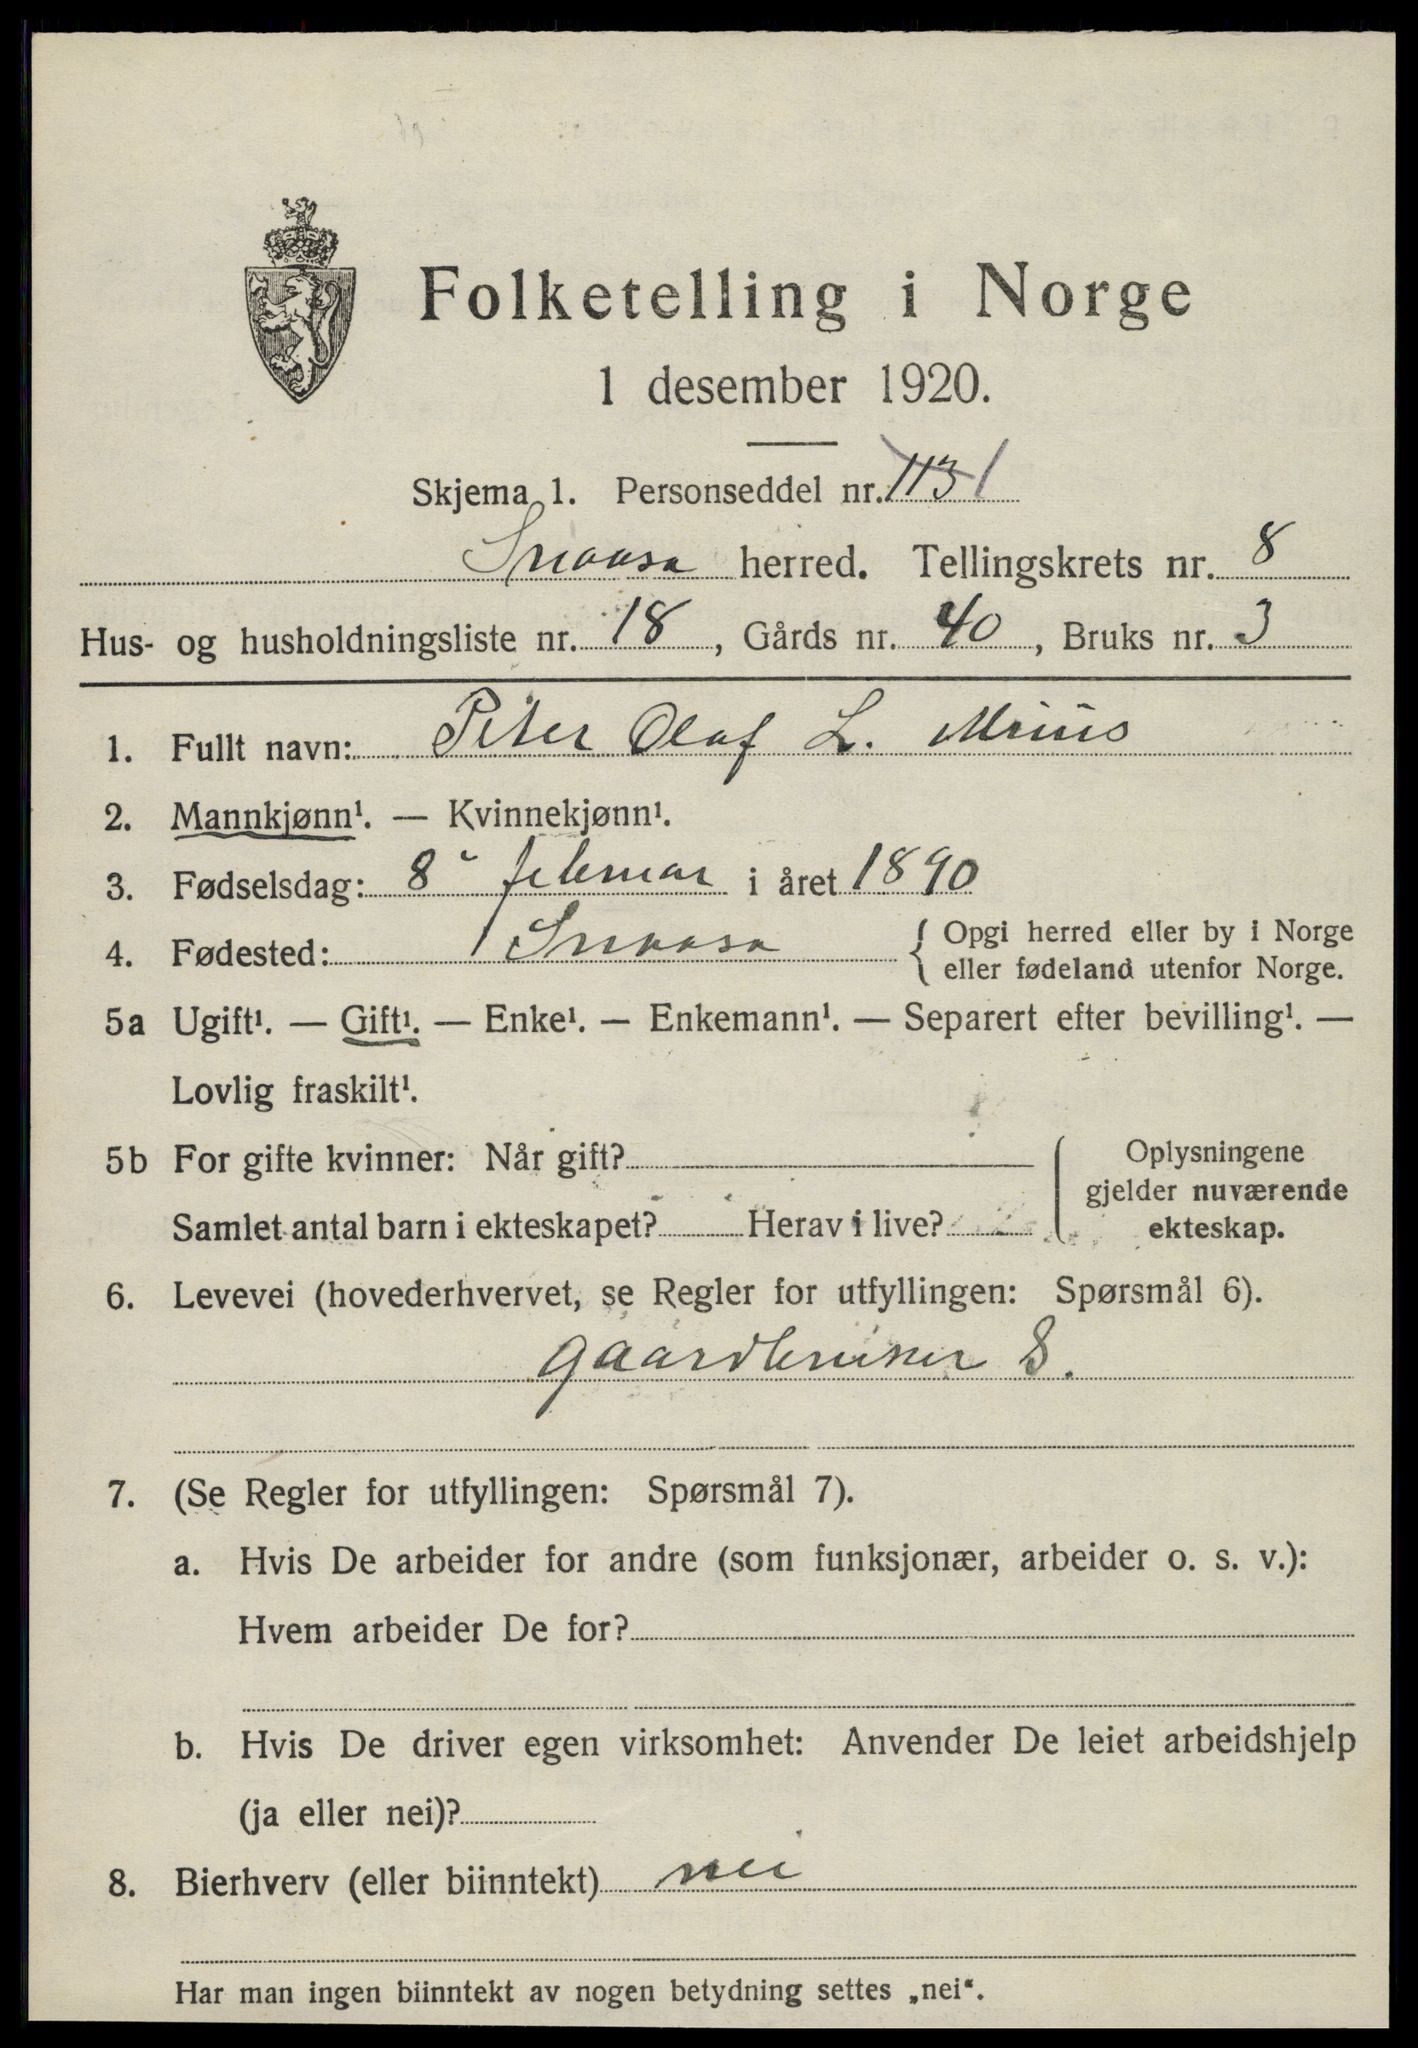 Folketelling i Norge
1 desember 1920.
Skjema 1. Personseddel nr. 113 1
Snaasa herred. Tellingskrets nr. 8
Hus- og husholdningsliste nr. 18, Gårds nr. 40, Bruks nr. 3
1. Fullt navn: Peter Olaf L.
2. Mannkjønn¹. — Kvinnekjønn¹.
3. Fødselsdag: 8 februar i året 1890
4. Fødested: Snaasa { Opgi herred eller by i Norge
eller fødeland utenfor Norge.
5a Ugift¹. — Gift¹. — Enke¹. — Enkemann¹. — Separert efter bevilling¹. —
Lovlig fraskilt¹.
5b For gifte kvinner: Når gift?
Samlet antal barn i ekteskapet? Herav i live?
Oplysningene
gjelder nuværende
ekteskap.
6. Levevei (hovederhvervet, se Regler for utfyllingen: Spørsmål 6).
Gaardbruker S.
7. (Se Regler for utfyllingen: Spørsmål 7).
a. Hvis De arbeider for andre (som funksjonær, arbeider o. s. v.):
Hvem arbeider De for?
b. Hvis De driver egen virksomhet: Anvender De leiet arbeidshjelp
(ja eller nei)?
8. Bierhverv (eller biinntekt) nei
Har man ingen biinntekt av nogen betydning settes „nei“.